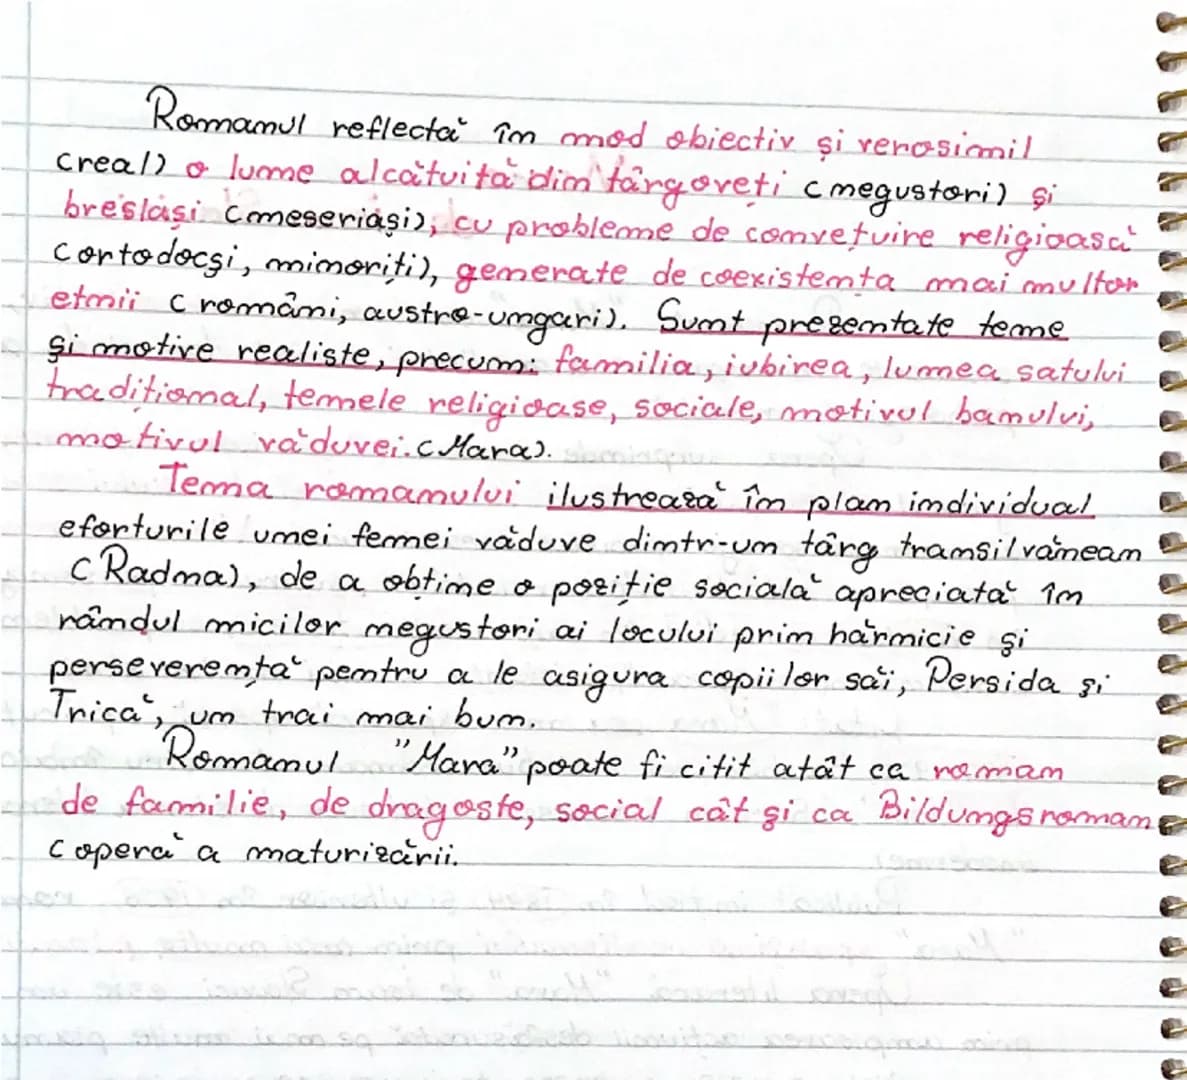 Romanul reflectă în mod obiectiv și verosimil
(real) o lume alcătuită din târgoveți (megustori) și
breslași (meseriași), cu probleme de convețuire religioasă
(ortodocși, minoriți), generate de coexistența mai multor
etnii (români, austro-ungari). Sunt prezentate teme
și motive realiste, precum: familia, iubirea, lumea satului
tradițional, temele religioase, sociale, motivul banului,
motivul văduvei. (Mara).
Tema romanului ilustrează în plan individual
eforturile unei femei văduve dintr-un târg transilvănean
(Radna), de a obține o poziție socială apreciată în
rândul micilor megustori ai locului prin hărnicie și
perseverență pentru a le asigura copiilor săi, Persida și
Trică, un trai mai bun.
Romanul "Mara" poate fi citit atât ca roman
de familie, de dragoste, social cât și ca Bildungsroman
(operă a maturizării.